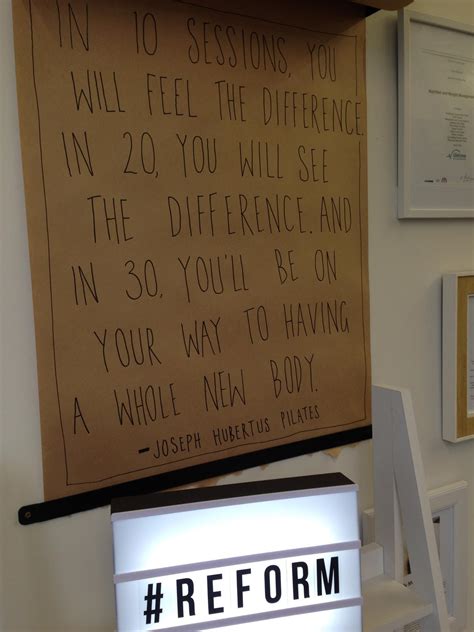 IN 10 SESSIONS, YOU
WILL FEEL THE DIFFERENCE.
IN 20, YOU WILL SEE
THE DIFFERENCE. AND
IN 30, YOU'LL BE ON
YOUR WAY TO HAVING
A WHOLE NEW BODY.
-JOSEPH HUBERTUS PILATES
#REFORM